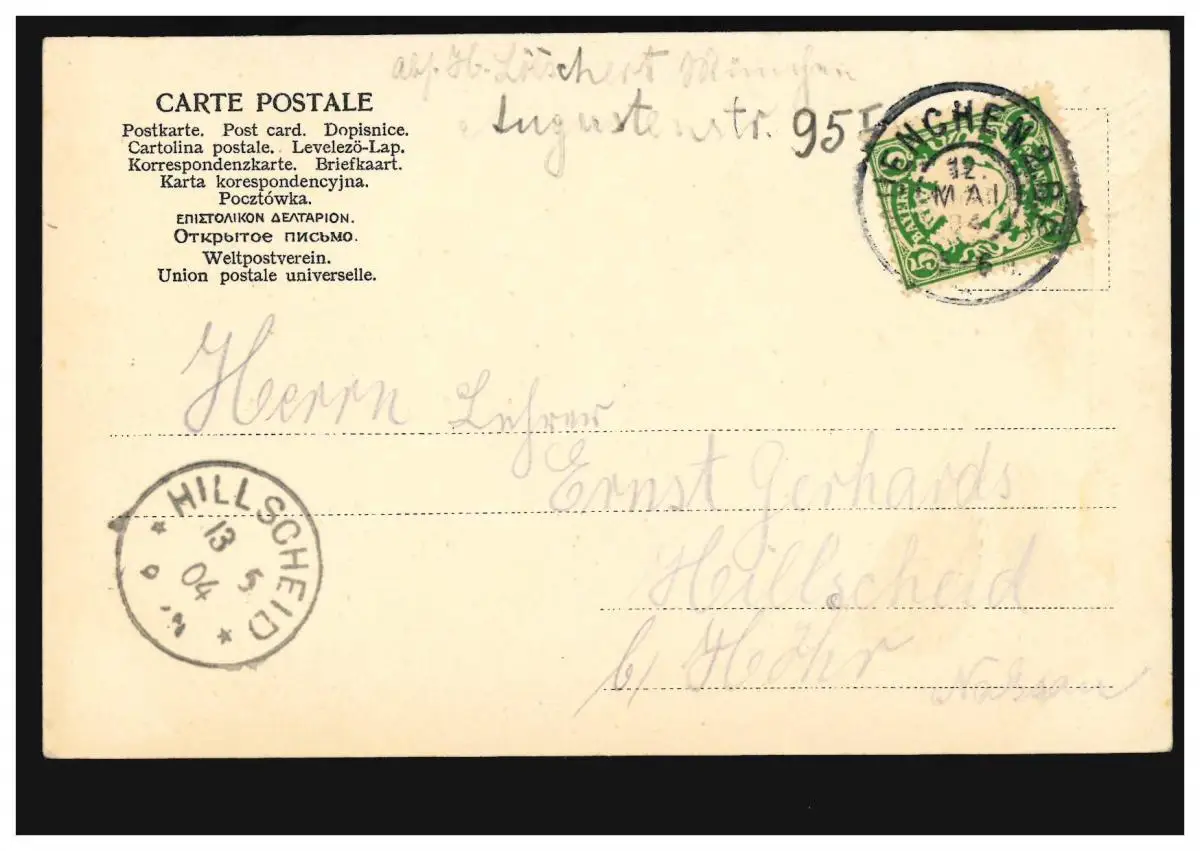 abs. H. Lötschert München
Augustenstr. 95 I
CARTE POSTALE
Postkarte. Post card. Dopisnice.
Cartolina postale. Levelezö-Lap.
Korrespondenzkarte. Briefkaart.
Karta korespondencyjna.
Pocztówka.
ΕΠΙΣΤΟΛΙΚΟΝ ΔΕΛΤΑΡΙΟΝ.
Открытое письмо.
Weltpostverein.
Union postale universelle.
ENCHEN 2
12.
MAI
BAYERN
5
Herrn Lehrer
Ernst Gerhards
Hillscheid
b/ Höhr Nassau
HILLSCHEID
13 5
04